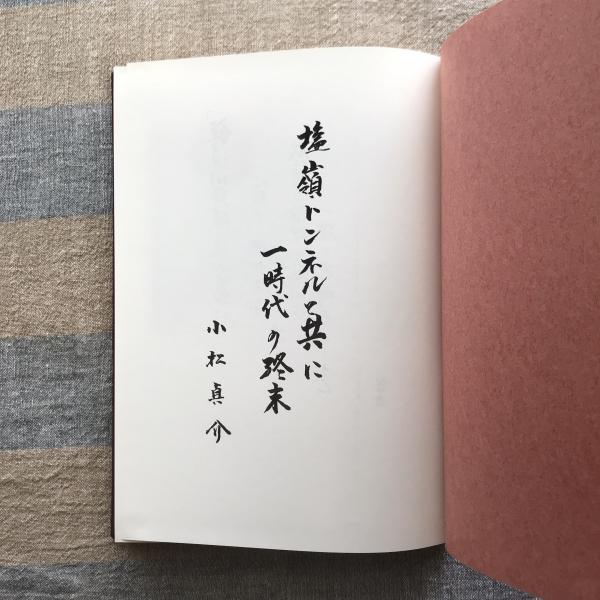 塩嶺トンネルと共に
一時代の終末
小松貞介